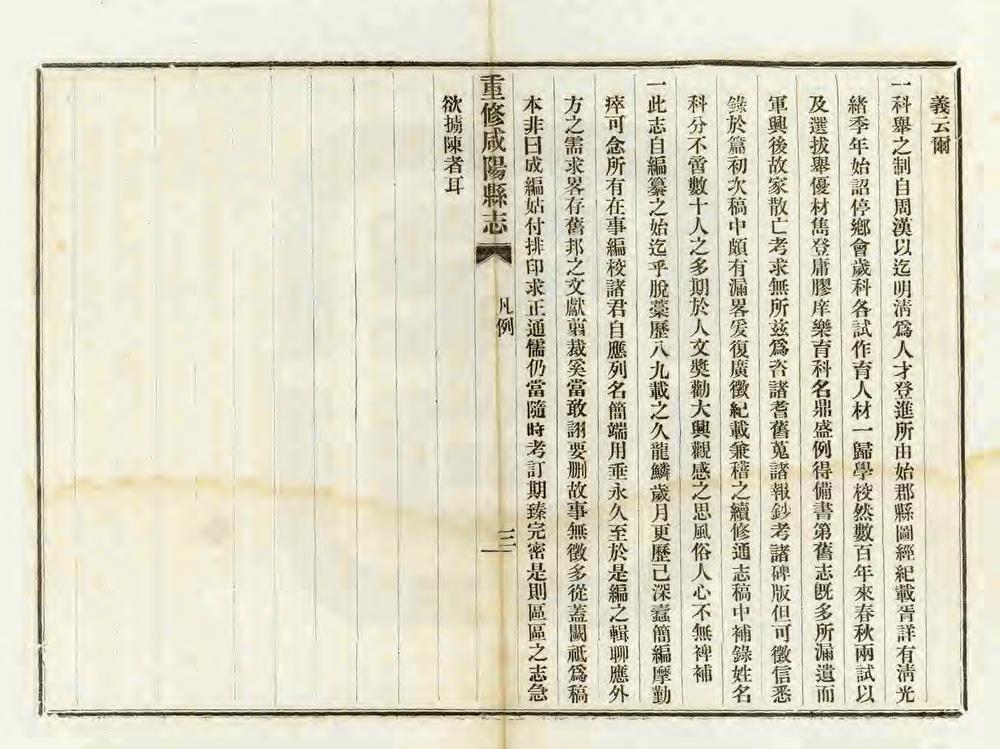 義云爾
一科舉之制自周漢以迄明淸爲人才登進所由始郡縣圖經紀載胥詳有淸光
緒季年始詔停鄉會歲科各試作育人材一歸學校然數百年來春秋兩試以
及選拔舉優材雋登庸膠庠樂育科名鼎盛例得備書第舊志旣多所漏遺而
軍興後故家散亡考求無所茲爲咨諸耆舊蒐諸報鈔考諸碑版但可徵信悉
錄於篇初次稿中頗有漏畧爰復廣徵紀載兼稽之續修通志稿中補錄姓名
科分不啻數十人之多期於人文獎勸大興觀感之思風俗人心不無裨補
一此志自編纂之始迄乎脫藁歷八九載之久龍鱗歲月更歷已深蠧簡編摩勤
瘁可念所有在事編校諸君自應列名簡端用垂永久至於是編之輯聊應外
方之需求畧存舊邦之文獻翦裁奚當敢詡要刪故事無徵多從蓋闕祇爲稿
本非曰成編姑付排印求正通儒仍當隨時考訂期臻完密是則區區之志急
欲擄陳者耳
重修咸陽縣志
凡例
三